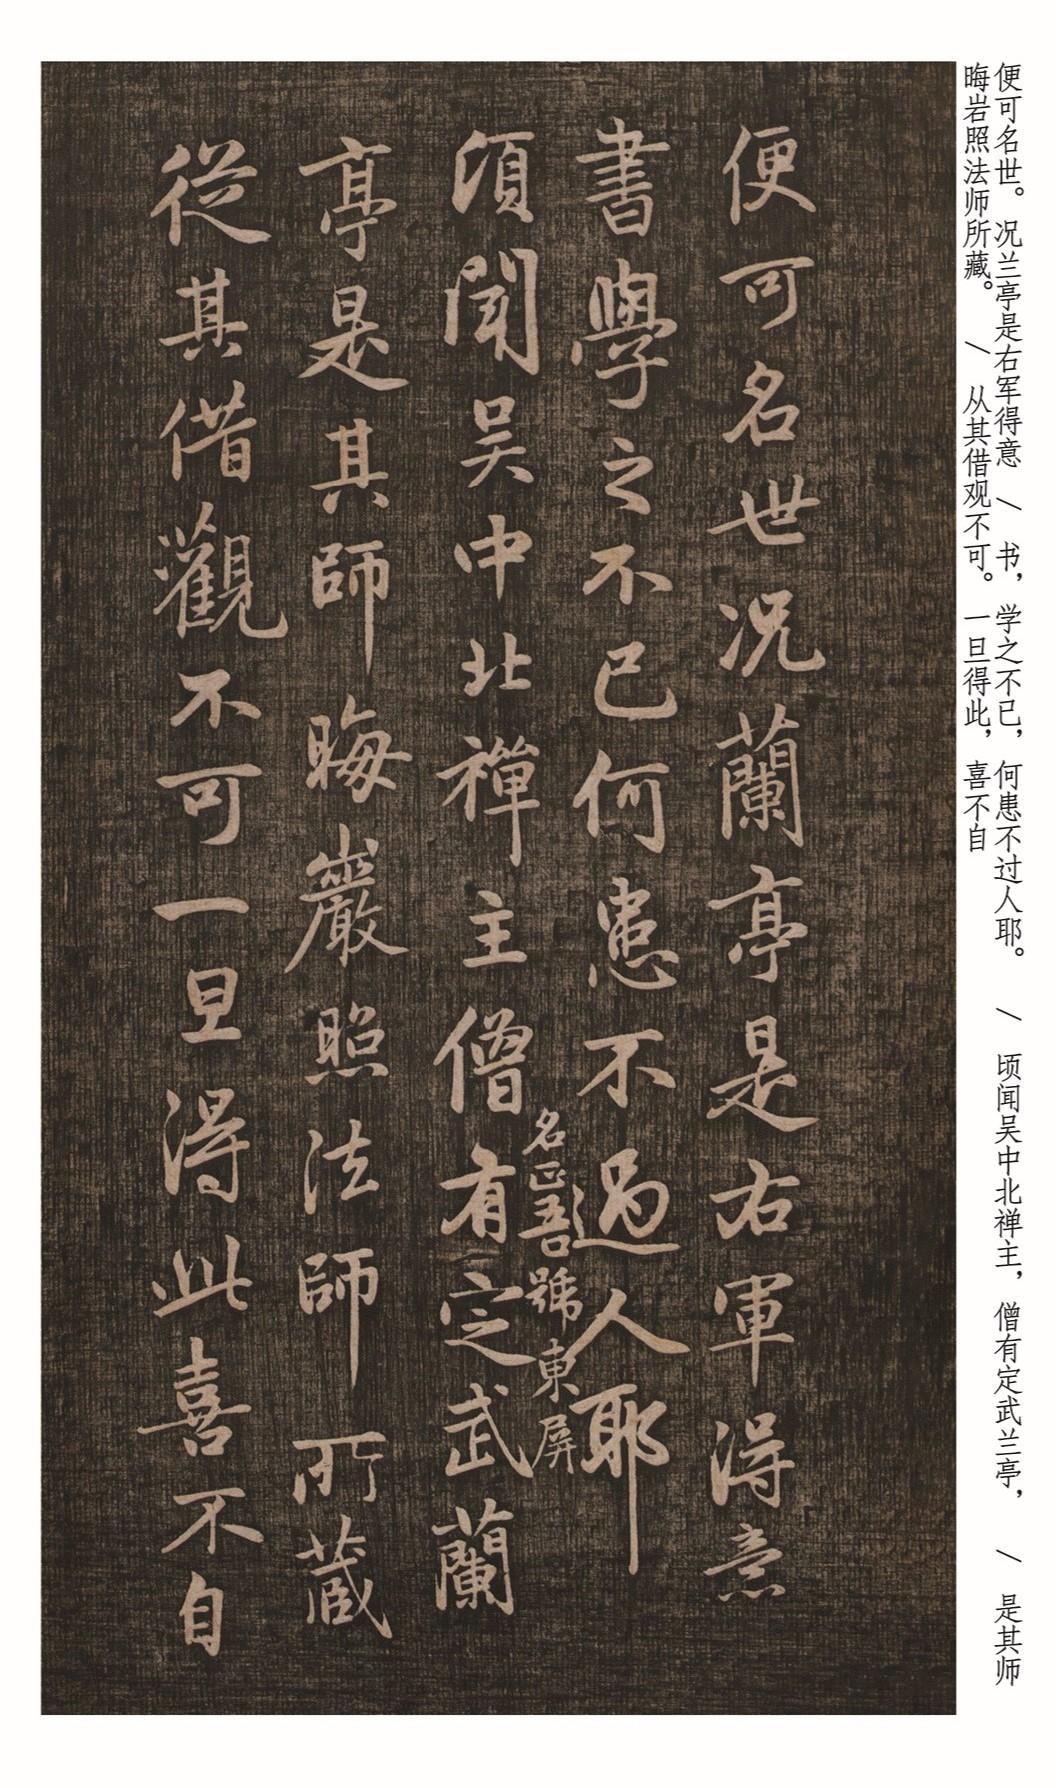 便可名世。况兰亭是右军得意 / 书，学之不已，何患不过人耶。 / 顷闻吴中北禅主，僧有定武兰亭， / 是其师
晦岩照法师所藏。 / 从其借观不可。一旦得此，喜不自
便可名世况蘭亭是右軍得意
書學之不已何患不過人耶
名正吾號東屏
頃聞吴中北禪主僧有定武蘭
亭是其師晦巖照法師所藏
從其借觀不可一旦得此喜不自